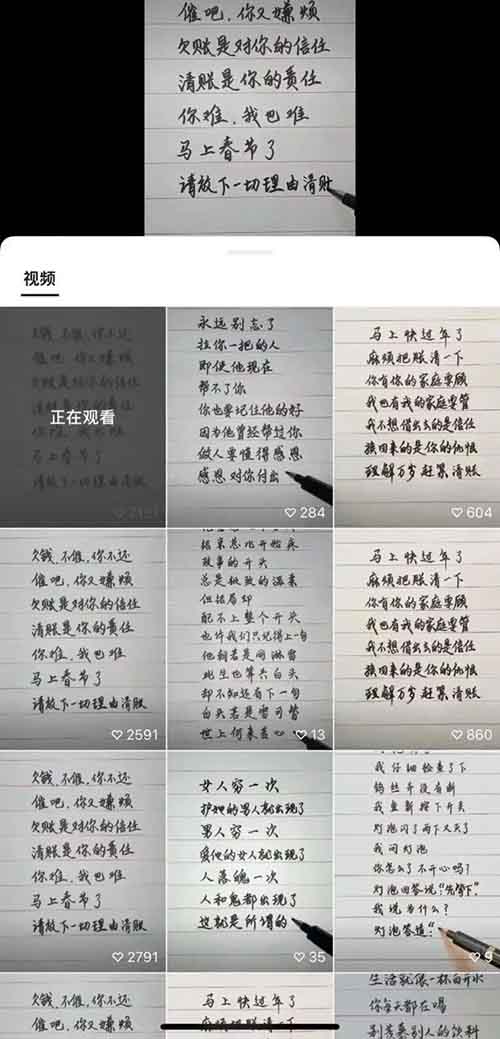 催吧，你又嫌烦
欠账是对你的信任
清账是你的责任
你难，我也难
马上春节了
请放下一切理由清账
视频
欠钱，不催，你不还
催吧，你又嫌烦
欠账是对你的信任
清账是你的责任
你难，我也难
马上春节了
请放下一切理由清账
正在观看
2591
永远别忘了
拉你一把的人
即使他现在
帮不了你
你也要记住他的好
因为他曾经帮过你
做人要懂得感恩
感恩对你付出
284
马上快过年了
麻烦把账清一下
你有你的家庭要顾
我也有我的家庭要管
我不想借出去的是信任
换回来的是你的仇恨
理解万岁赶紧清账
604
欠钱，不催，你不还
催吧，你又嫌烦
欠账是对你的信任
清账是你的责任
你难，我也难
马上春节了
请放下一切理由清账
2591
故事的开头
总是极致的温柔
但结局却
配不上整个开头
也许我们只记得上一句
他朝若是同淋雪
此生也算共白头
却不知还有下一句
白头若是雪可替
世上何来苦心
13
马上快过年了
麻烦把账清一下
你有你的家庭要顾
我也有我的家庭要管
我不想借出去的是信任
换回来的是你的仇恨
理解万岁赶紧清账
860
欠钱，不催，你不还
催吧，你又嫌烦
欠账是对你的信任
清账是你的责任
你难，我也难
马上春节了
请放下一切理由清账
2791
女人穷一次
护她的男人就出现了
男人穷一次
爱他的女人就出现了
人落魄一次
人和鬼都出现了
这就是所谓的
35
我仔细检查了下
钨丝并没有断
我重新按下开关
灯泡闪了两下又灭了
我问灯泡
你怎么了不开心吗?
灯泡回答说:"先停下"
我说为什么?
灯泡答道:"
9
欠钱，不催，你不还
催吧，你又嫌烦
马上快过年了
麻烦把账清一下
生活就像一杯白开水
你每天都在喝
别羡慕别人的饮料